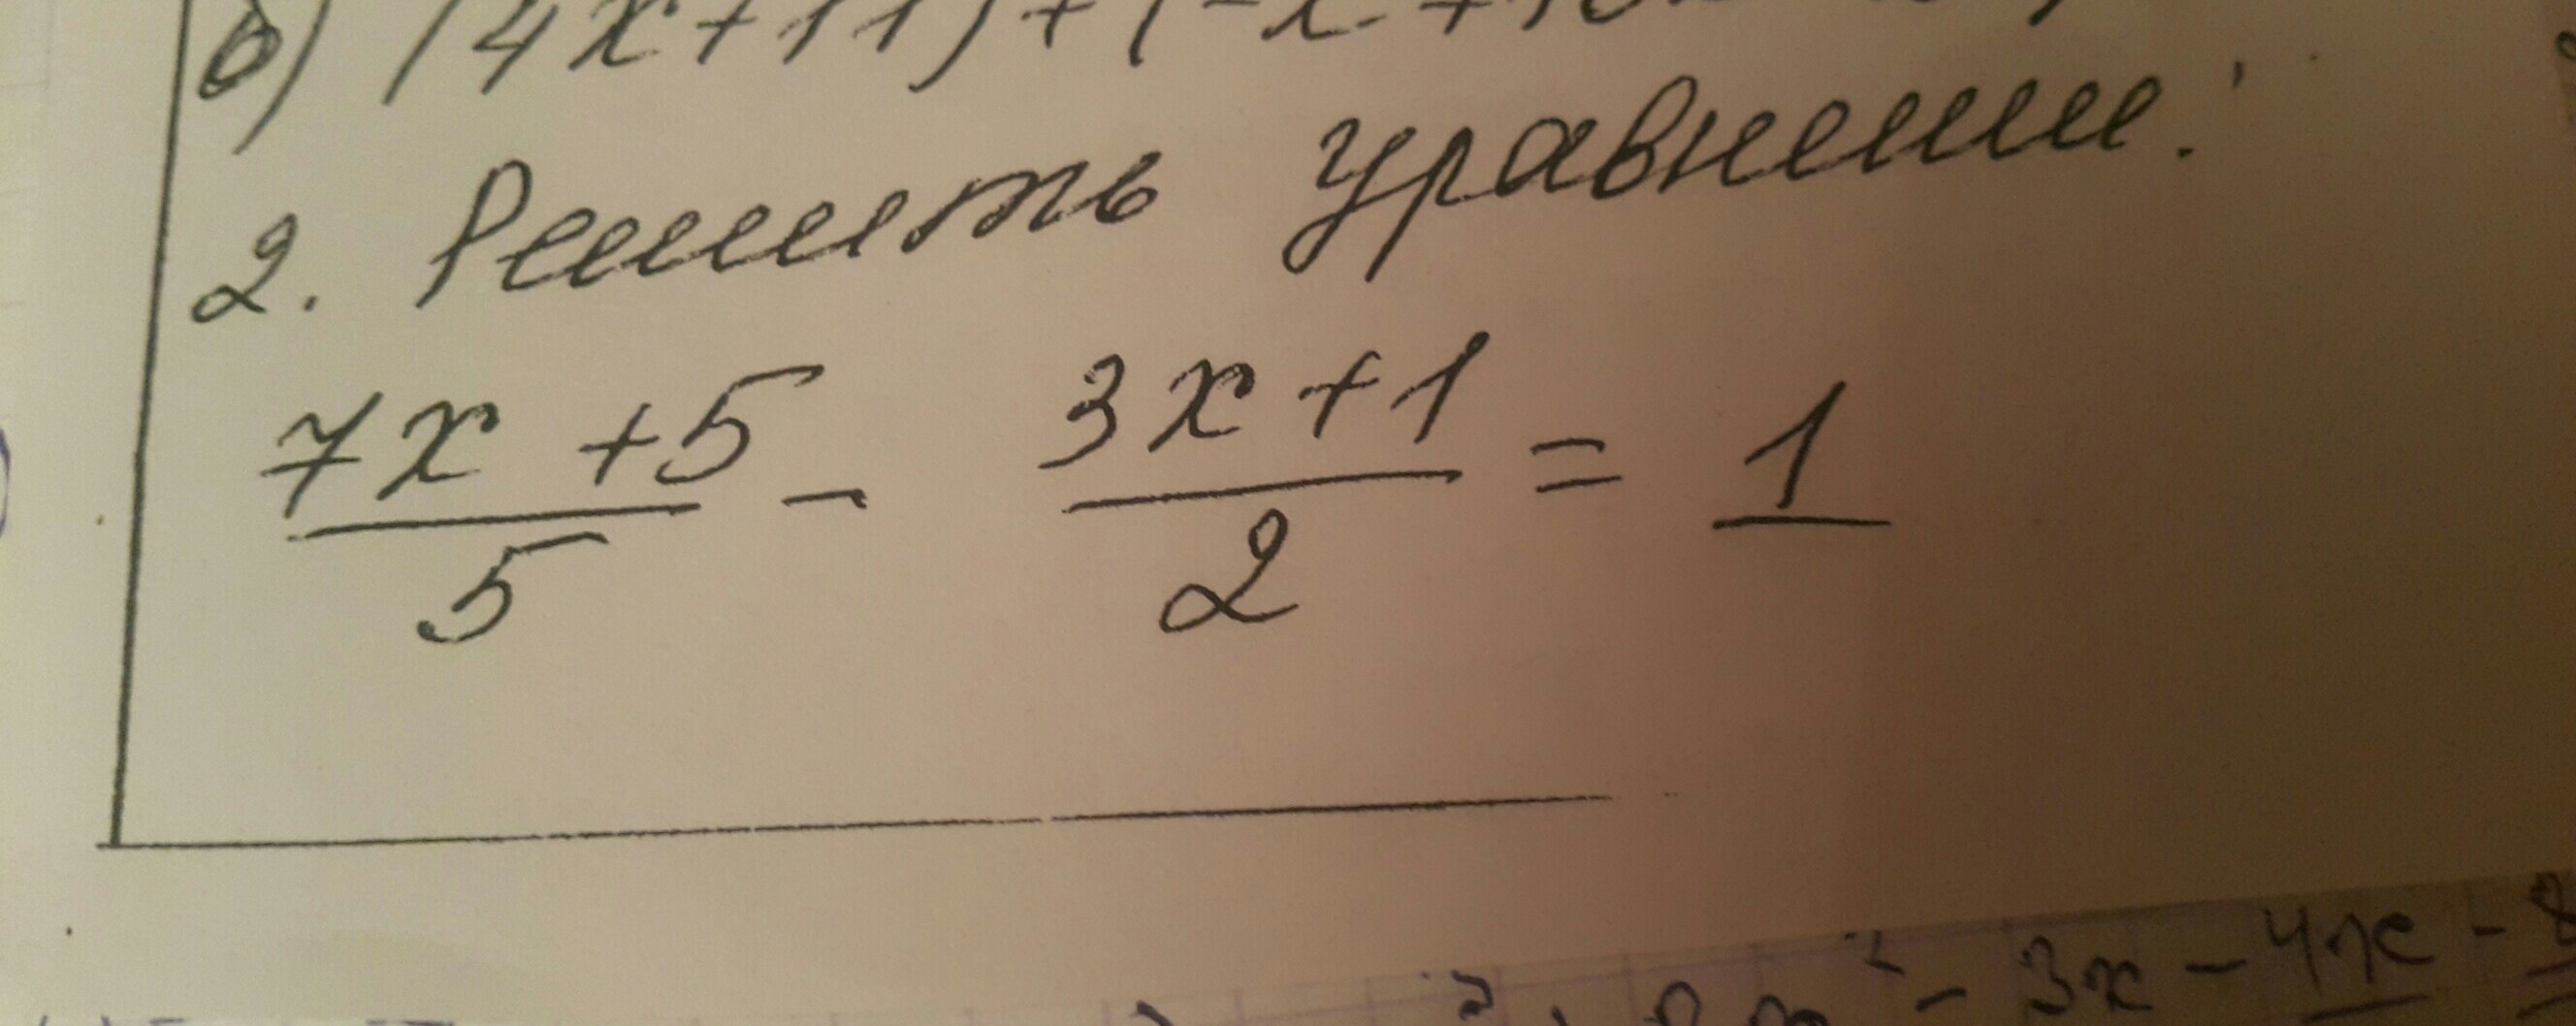 б) (4x+11)+(-x+
2. Решить уравнение:
7x+5/5 - 3x+1/2 = 1
- 3x - 4x -